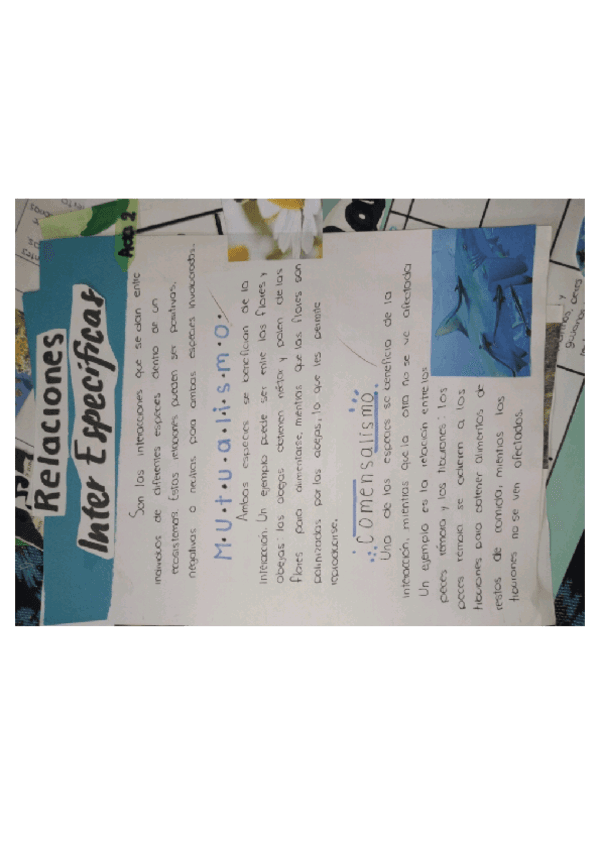 Relaciones
Inter Especificas
Act 2
Son las interacciones que se dan entre
individuos de diferentes especies dentro de un
ecosistema. Estas relaciones pueden ser positivas,
negativas o neutras para ambas especies involucradas.
M·U·t·u·a·l·i·s·m·o·
Ambas especies se benefician de la
interacción. Un ejemplo puede ser entre las flores y
abejas: las abejas obtienen néctar y polen de las
flores para alimentarse, mientras que las flores son
polinizadas por las abejas, lo que les permite
reproducirse.
Comensalismo
Una de las especies se beneficia de la
interacción, mientras que la otra no se ve afectada
Un ejemplo es la relación entre los
peces rémora y los tiburones: los
peces remora se adieren a los
tiburones para obtener alimentos de
restos de comida, mientras los
tiburones no se ven afectados.